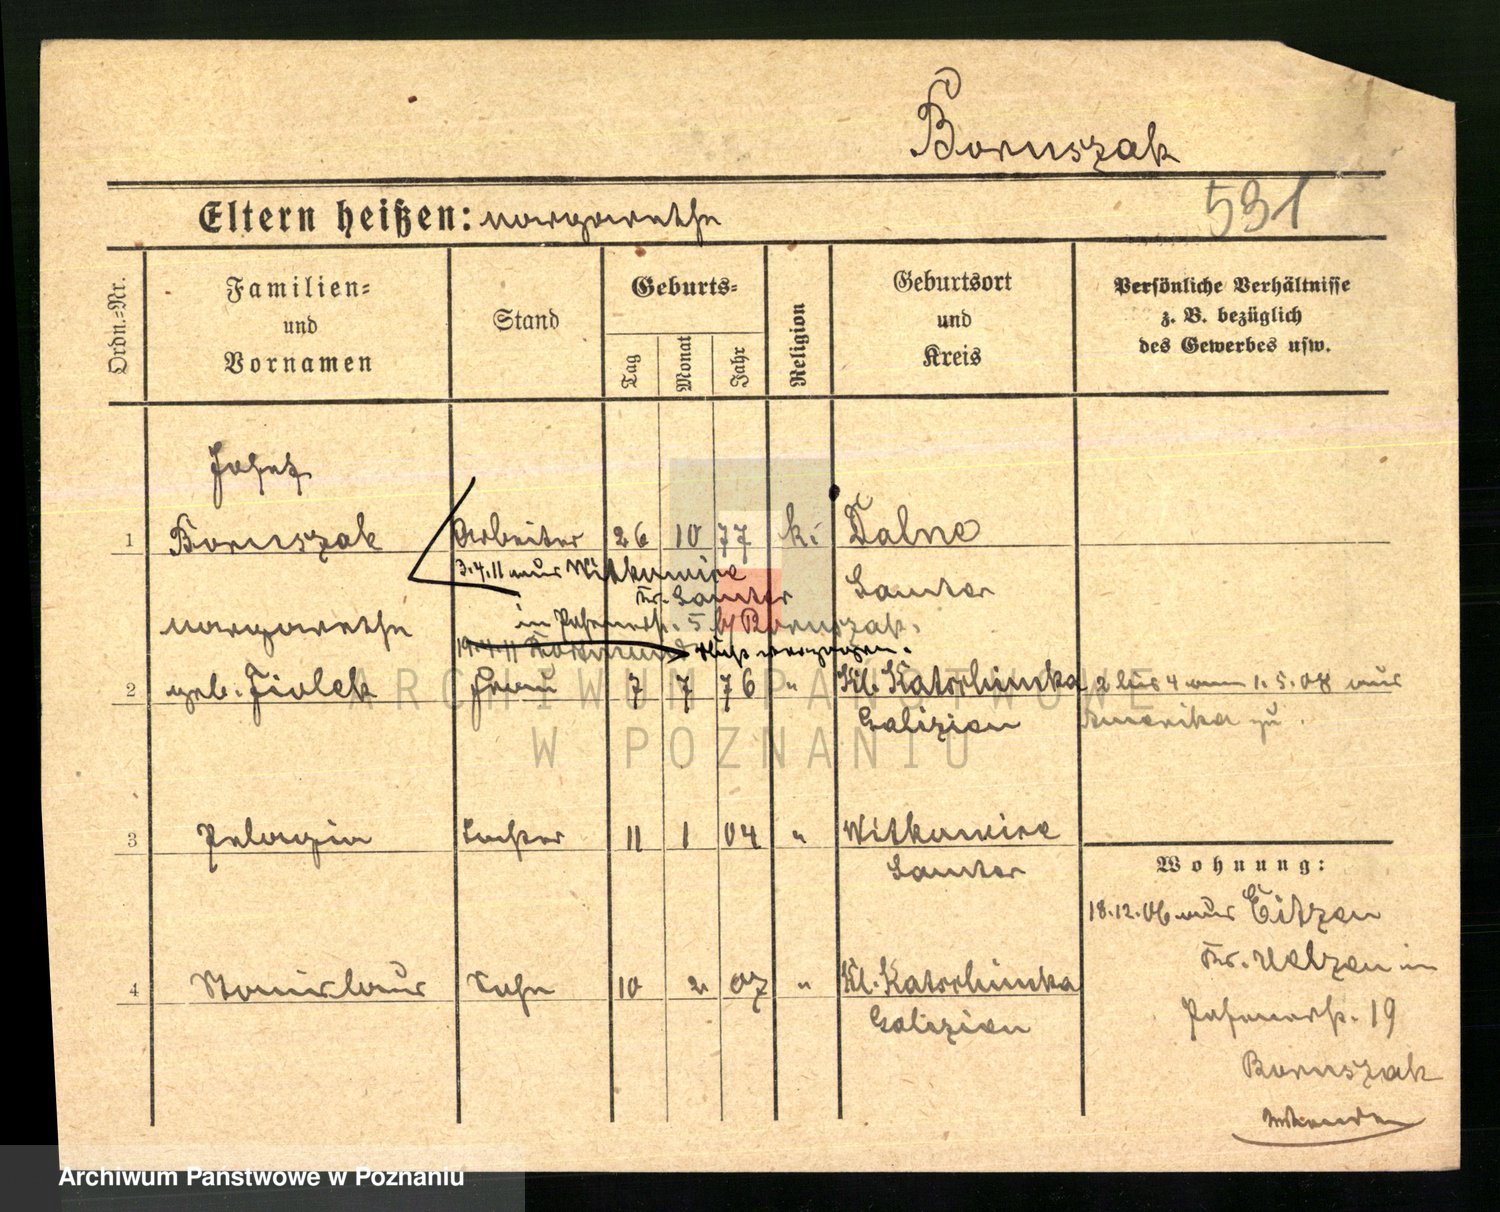 Boruszak
531
Eltern heißen: Margarethe
Ordn.=Nr.
Familien=
und
Vornamen
Stand
Geburts=
Tag
Monat
Jahr
Religion
Geburtsort
und
Kreis
Persönliche Verhältnisse
z. B. bezüglich
des Gewerbes usw.
Josef
1 Boruszak Arbeiter 26 10 77 k. Dalne
Samter
3.4.11 aus Witkowice
Kr. Samter
in 5 b/ Boruszak.
19.4.11
Margarethe
2 geb. Ziolek Frau 7 7 76 " Kl. Katschinka
Galizien
2 bis 4 am 1.5.08 aus
Amerika zu.
3 Pelagia Tochter 11 1 04 " Witkowice
Samter
4 Stanislaus Sohn 10 2 07 " Kl. Katschinka
Galizien
Wohnung:
18.12.06 aus Eitzen
Kr. Uelzen in
19
Boruszak
ARCHIWUM PAŃSTWOWE
W POZNANIU
Archiwum Państwowe w Poznaniu